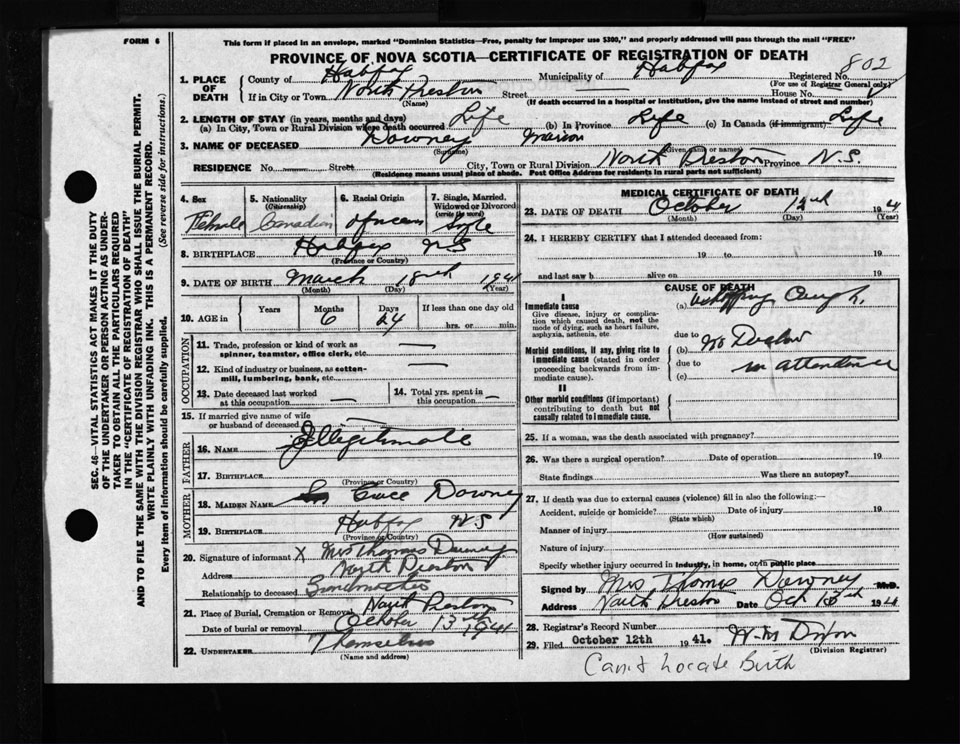 FORM 6
This form if placed in an envelope, marked "Dominion Statistics—Free, penalty for improper use $300," and properly addressed will pass through the mail "FREE"
PROVINCE OF NOVA SCOTIA—CERTIFICATE OF REGISTRATION OF DEATH
802
1. PLACE OF DEATH
County of Halifax Municipality of Halifax Registered No.
(For use of Registrar General only)
If in City or Town North Preston Street House No.
(Name) (If death occurred in a hospital or institution, give the name instead of street and number)
2. LENGTH OF STAY (in years, months and days)
(a) In City, Town or Rural Division where death occurred Life (b) In Province Life (c) In Canada (if immigrant) Life
3. NAME OF DECEASED Downey Marion
(Surname) (Given name or names)
RESIDENCE No. Street City, Town or Rural Division North Preston Province N.S.
(Residence means usual place of abode. Post Office Address for residents in rural parts not sufficient)
4. Sex
Female
5. Nationality
(Citizenship)
Canadian
6. Racial Origin
7. Single, Married, Widowed or Divorced
(write the word)
Sgle
8. BIRTHPLACE Halifax N S
(Province or Country)
9. DATE OF BIRTH March 18th 1941
(Month) (Day) (Year)
10. AGE in Years Months Days If less than one day old
6 24 hrs. or min.
OCCUPATION
11. Trade, profession or kind of work as spinner, teamster, office clerk, etc.
12. Kind of industry or business, as cotton-mill, lumbering, bank, etc.
13. Date deceased last worked at this occupation
14. Total yrs. spent in this occupation
15. If married give name of wife or husband of deceased
FATHER
16. NAME Illegitimate
17. BIRTHPLACE
(Province or Country)
MOTHER
18. MAIDEN NAME Grace Downey
19. BIRTHPLACE Halifax N S
(Province or Country)
20. Signature of informant X Mrs Thomas Downey
Address North Preston
Relationship to deceased Grandmother
21. Place of Burial, Cremation or Removal North Preston
Date of burial or removal October 13th 1941
22. UNDERTAKER Themselves
(Name and address)
MEDICAL CERTIFICATE OF DEATH
23. DATE OF DEATH October 12th 1941
(Month) (Day) (Year)
24. I HEREBY CERTIFY that I attended deceased from:
19 to 19
and last saw h alive on 19
CAUSE OF DEATH
I
Immediate cause
Give disease, injury or complication which caused death, not the mode of dying, such as heart failure, asphyxia, asthenia, etc.
(a) Whooping Cough
due to
Morbid conditions, if any, giving rise to immediate cause (stated in order proceeding backwards from immediate cause).
(b) No Doctor
due to in attendence
(c)
II
Other morbid conditions (if important) contributing to death but not causally related to immediate cause.
25. If a woman, was the death associated with pregnancy?
26. Was there a surgical operation? Date of operation 19
State findings Was there an autopsy?
27. If death was due to external causes (violence) fill in also the following:—
Accident, suicide or homicide? Date of injury 19
(State which)
Manner of injury
(How sustained)
Nature of injury
Specify whether injury occurred in industry, in home, or in public place
Signed by Mrs Thomas Downey M.D.
Address North Preston Date Oct 13th 1941
28. Registrar's Record Number
29. Filed October 12th 1941.
(Division Registrar)
Can't Locate Birth
SEC. 46—VITAL STATISTICS ACT MAKES IT THE DUTY
OF THE UNDERTAKER OR PERSON ACTING AS UNDER-
TAKER TO OBTAIN ALL THE PARTICULARS REQUIRED
IN THE "CERTIFICATE OF REGISTRATION OF DEATH"
AND TO FILE THE SAME WITH THE DIVISION REGISTRAR WHO SHALL ISSUE THE BURIAL PERMIT.
WRITE PLAINLY WITH UNFADING INK. THIS IS A PERMANENT RECORD.
Every item of information should be carefully supplied. (See reverse side for instructions.)